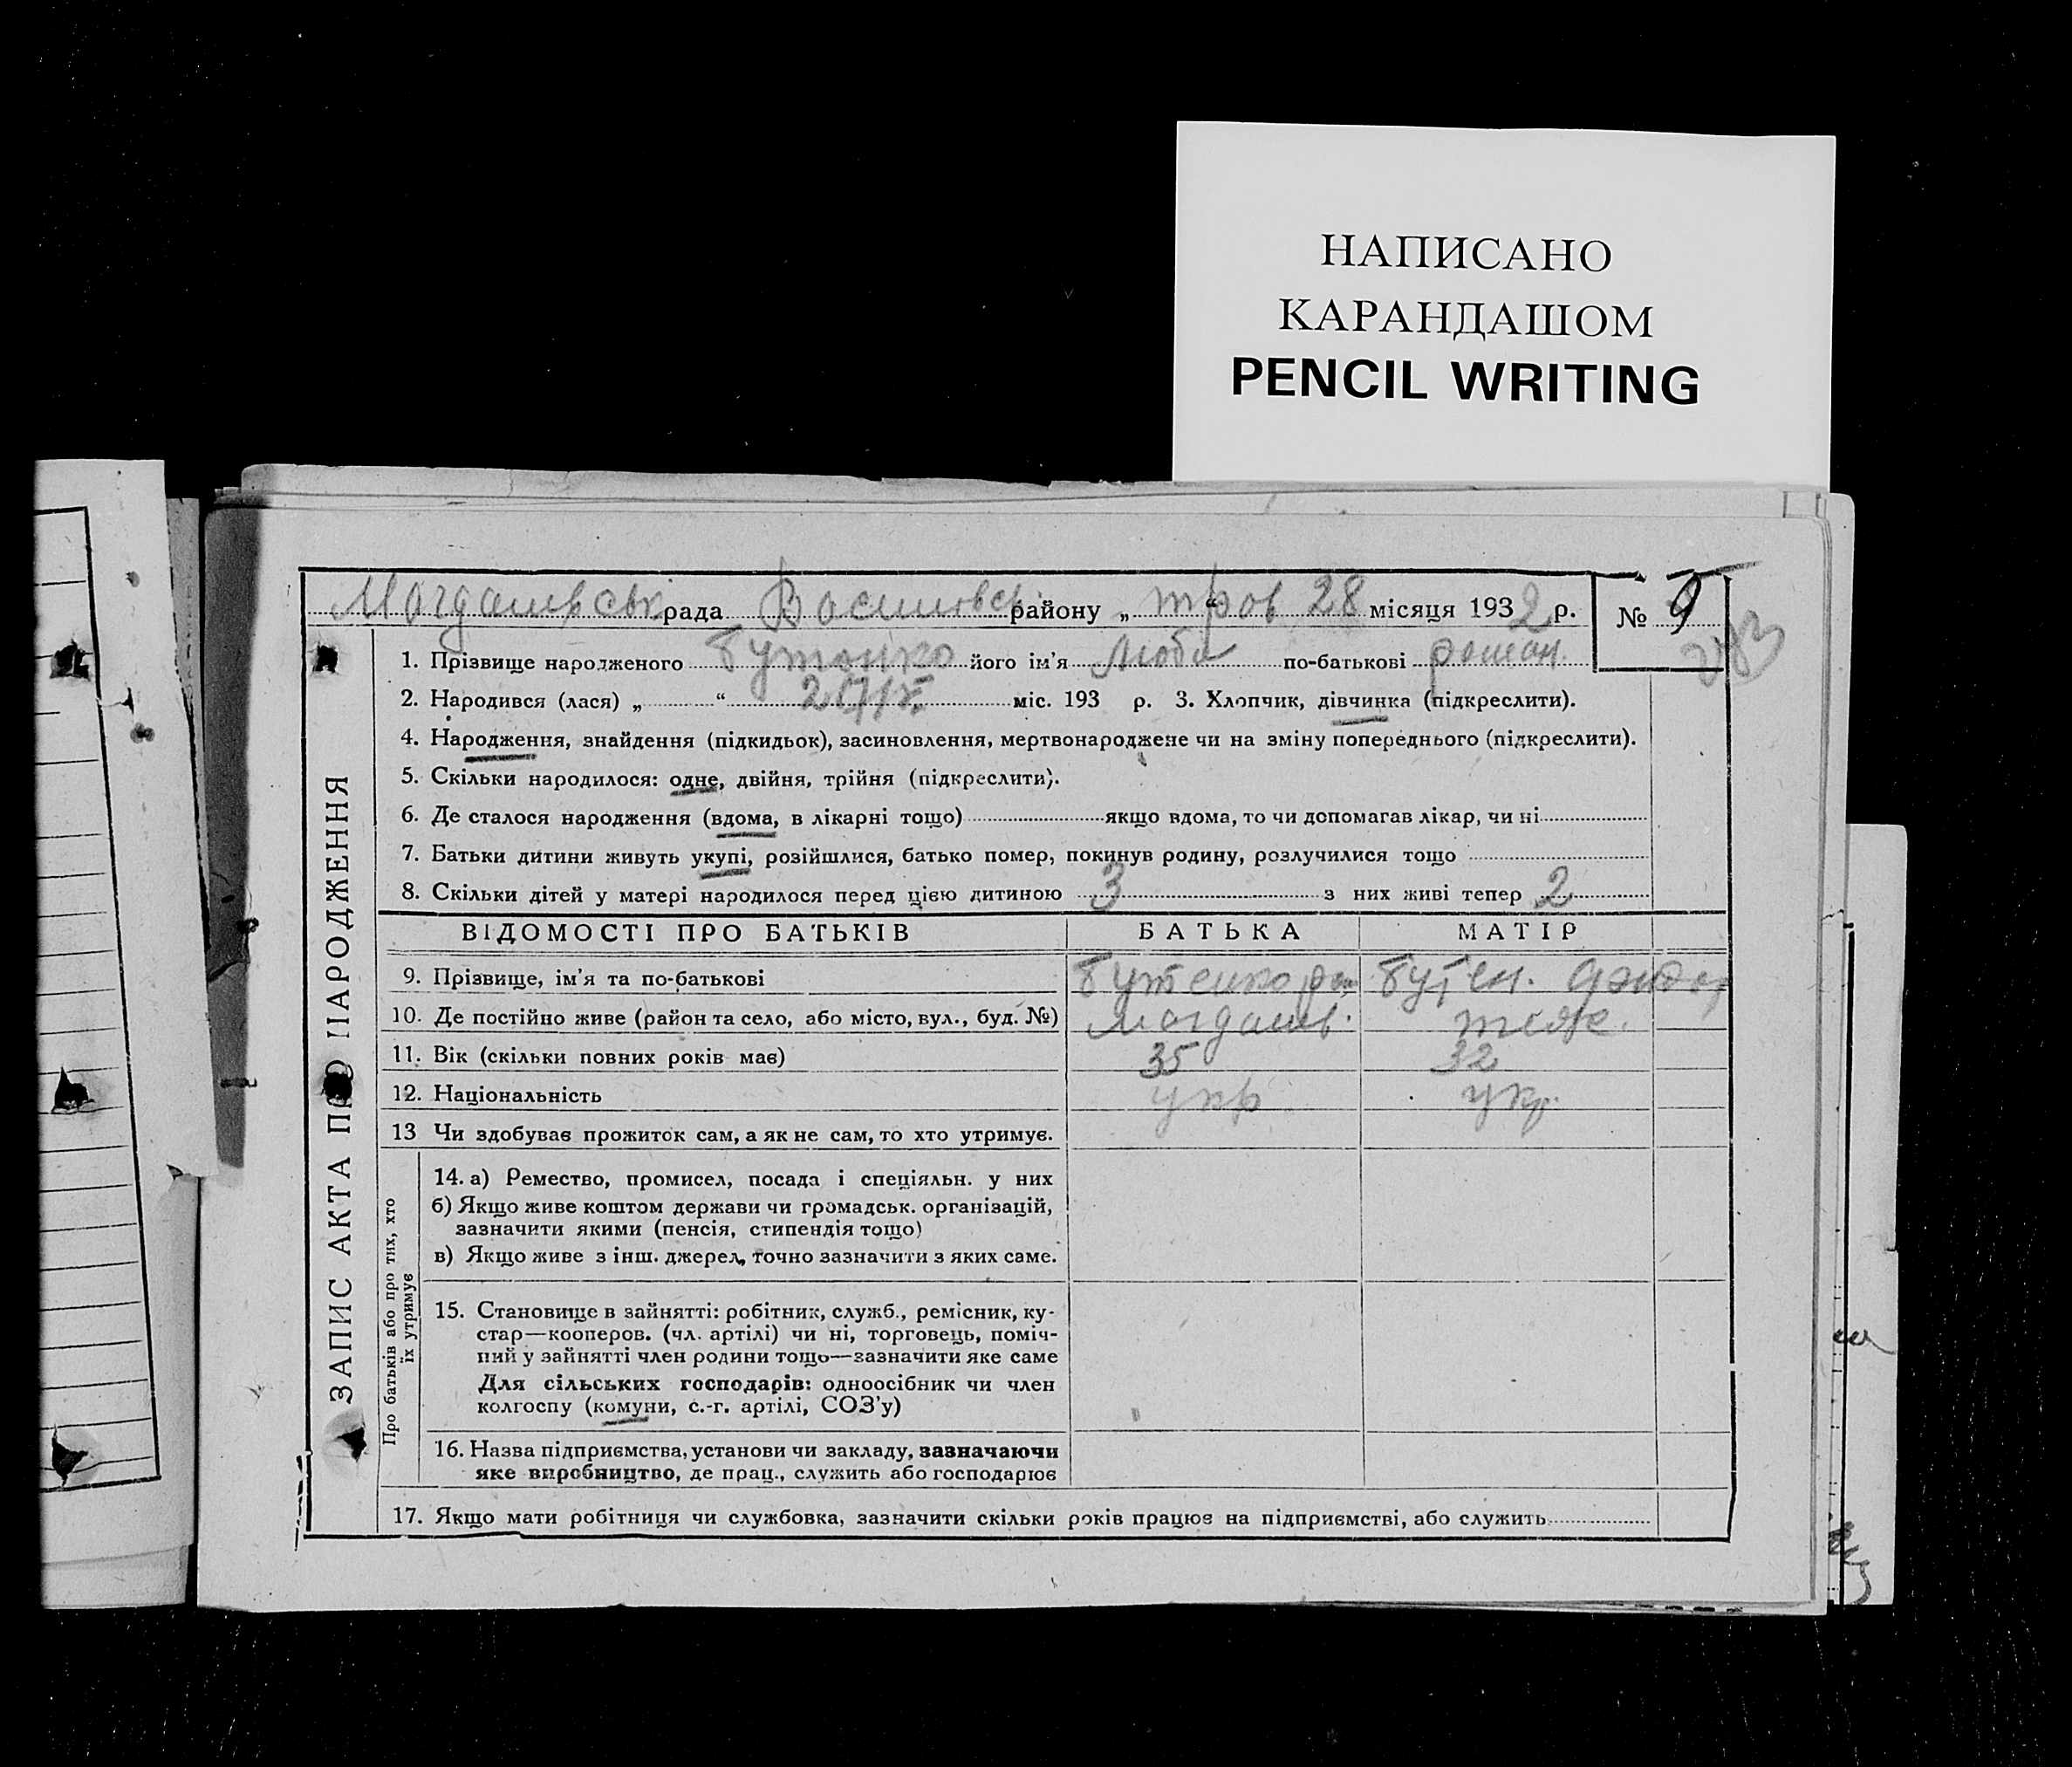 НАПИСАНО
КАРАНДАШОМ
PENCIL WRITING
рада району „ “ 28 місяця 1932 р. № 9
1. Прізвище народженого Бутенко його ім’я Люба по-батькові роман.
2. Народився (лася) „ “ міс. 193 р. 3. Хлопчик, дівчинка (підкреслити).
4. Народження, знайдення (підкидьок), засиновлення, мертвонароджене чи на зміну попереднього (підкреслити).
5. Скільки народилося: одне, двійня, трійня (підкреслити).
6. Де сталося народження (вдома, в лікарні тощо) якщо вдома, то чи допомагав лікар, чи ні
7. Батьки дитини живуть укупі, розійшлися, батько помер, покинув родину, розлучилися тощо
8. Скільки дітей у матері народилося перед цією дитиною 3 з них живі тепер 2
ВІДОМОСТІ ПРО БАТЬКІВ БАТЬКА МАТІР
9. Прізвище, ім’я та по-батькові Бутенко Бутен.
10. Де постійно живе (район та село, або місто, вул., буд. №)
11. Вік (скільки повних років має) 35 32
12. Національність укр укр.
13 Чи здобуває прожиток сам, а як не сам, то хто утримує.
14. а) Ремество, промисел, посада і спеціяльн. у них
б) Якщо живе коштом держави чи громадськ. організацій,
зазначити якими (пенсія, стипендія тощо)
в) Якщо живе з інш. джерел, точно зазначити з яких саме.
15. Становище в зайнятті: робітник, служб., ремісник, ку-
стар—кооперов. (чл. артілі) чи ні, торговець, поміч-
ний у зайнятті член родини тощо—зазначити яке саме
Для сільських господарів: одноосібник чи член
колгоспу (комуни, с.-г. артілі, СОЗ’у)
16. Назва підприємства, установи чи закладу, зазначаючи
яке виробництво, де прац., служить або господарює
17. Якщо мати робітниця чи службовка, зазначити скільки років працює на підприємстві, або служить
ЗАПИС АКТА ПРО НАРОДЖЕННЯ
Про батьків або про тих, хто
їх утримує